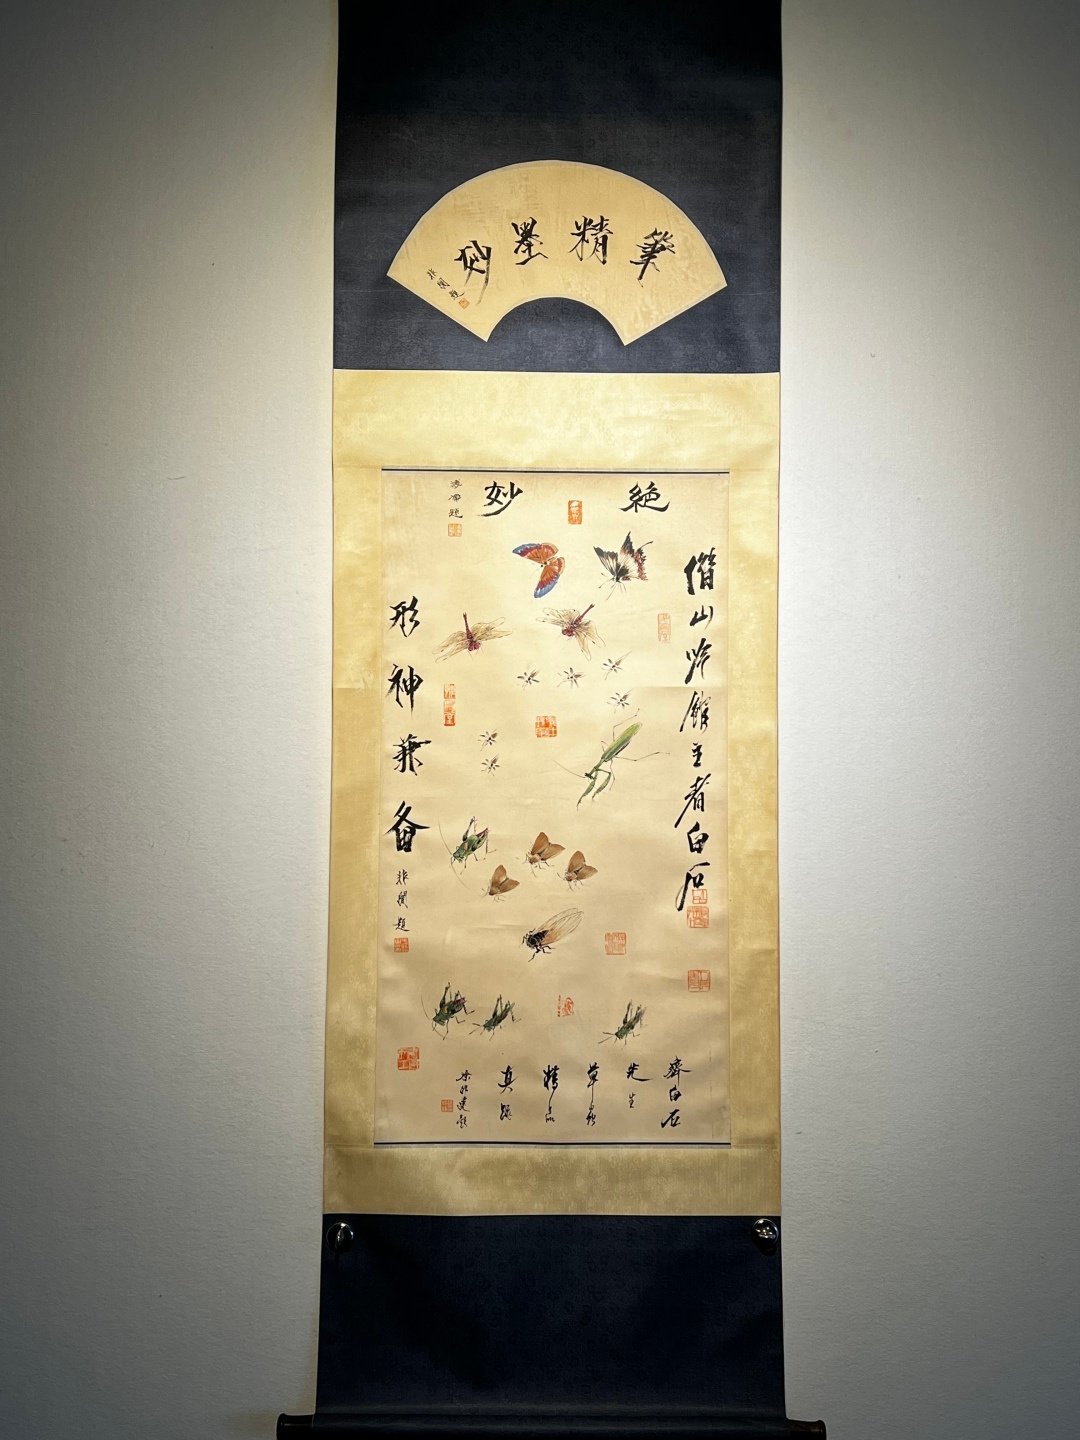 筆精墨妙
非闇題
絶妙
借山吟館主者白石
形神兼备
非闇題
齊白石
先生
草蟲
精品
真跡
徐悲鴻題